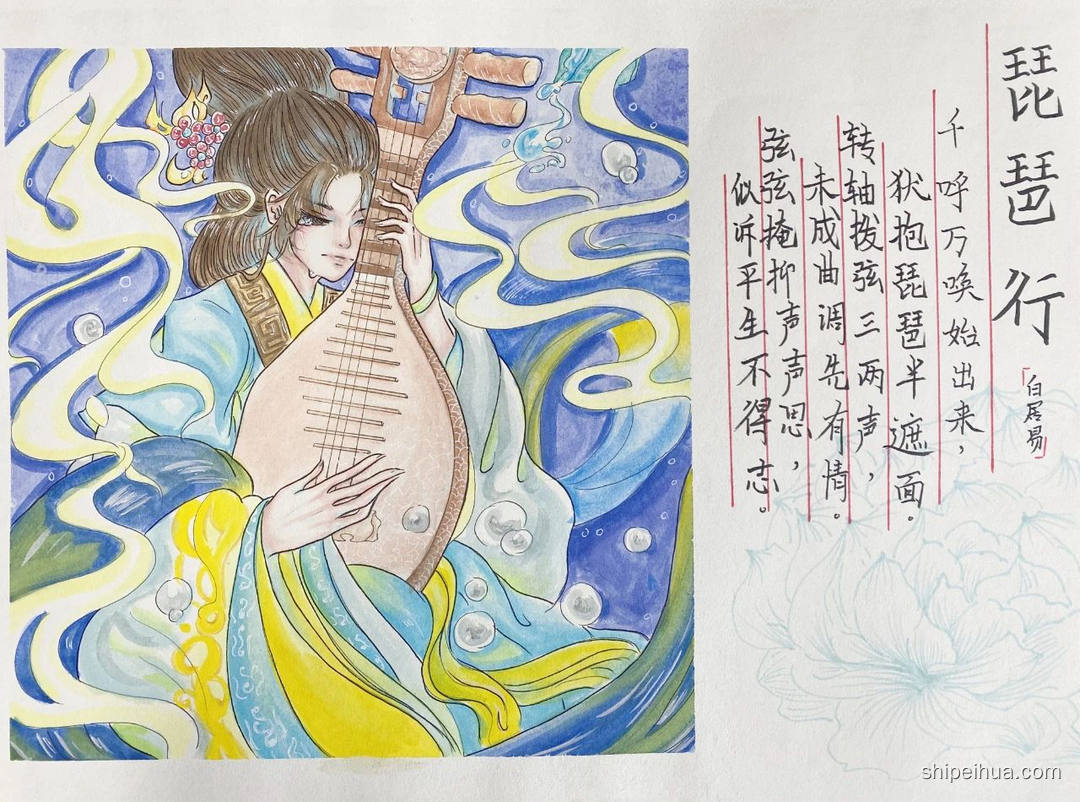 琵琶行
「白居易」
千呼万唤始出来，
犹抱琵琶半遮面。
转轴拨弦三两声，
未成曲调先有情。
弦弦掩抑声声思，
似诉平生不得志。
shipeihua.com